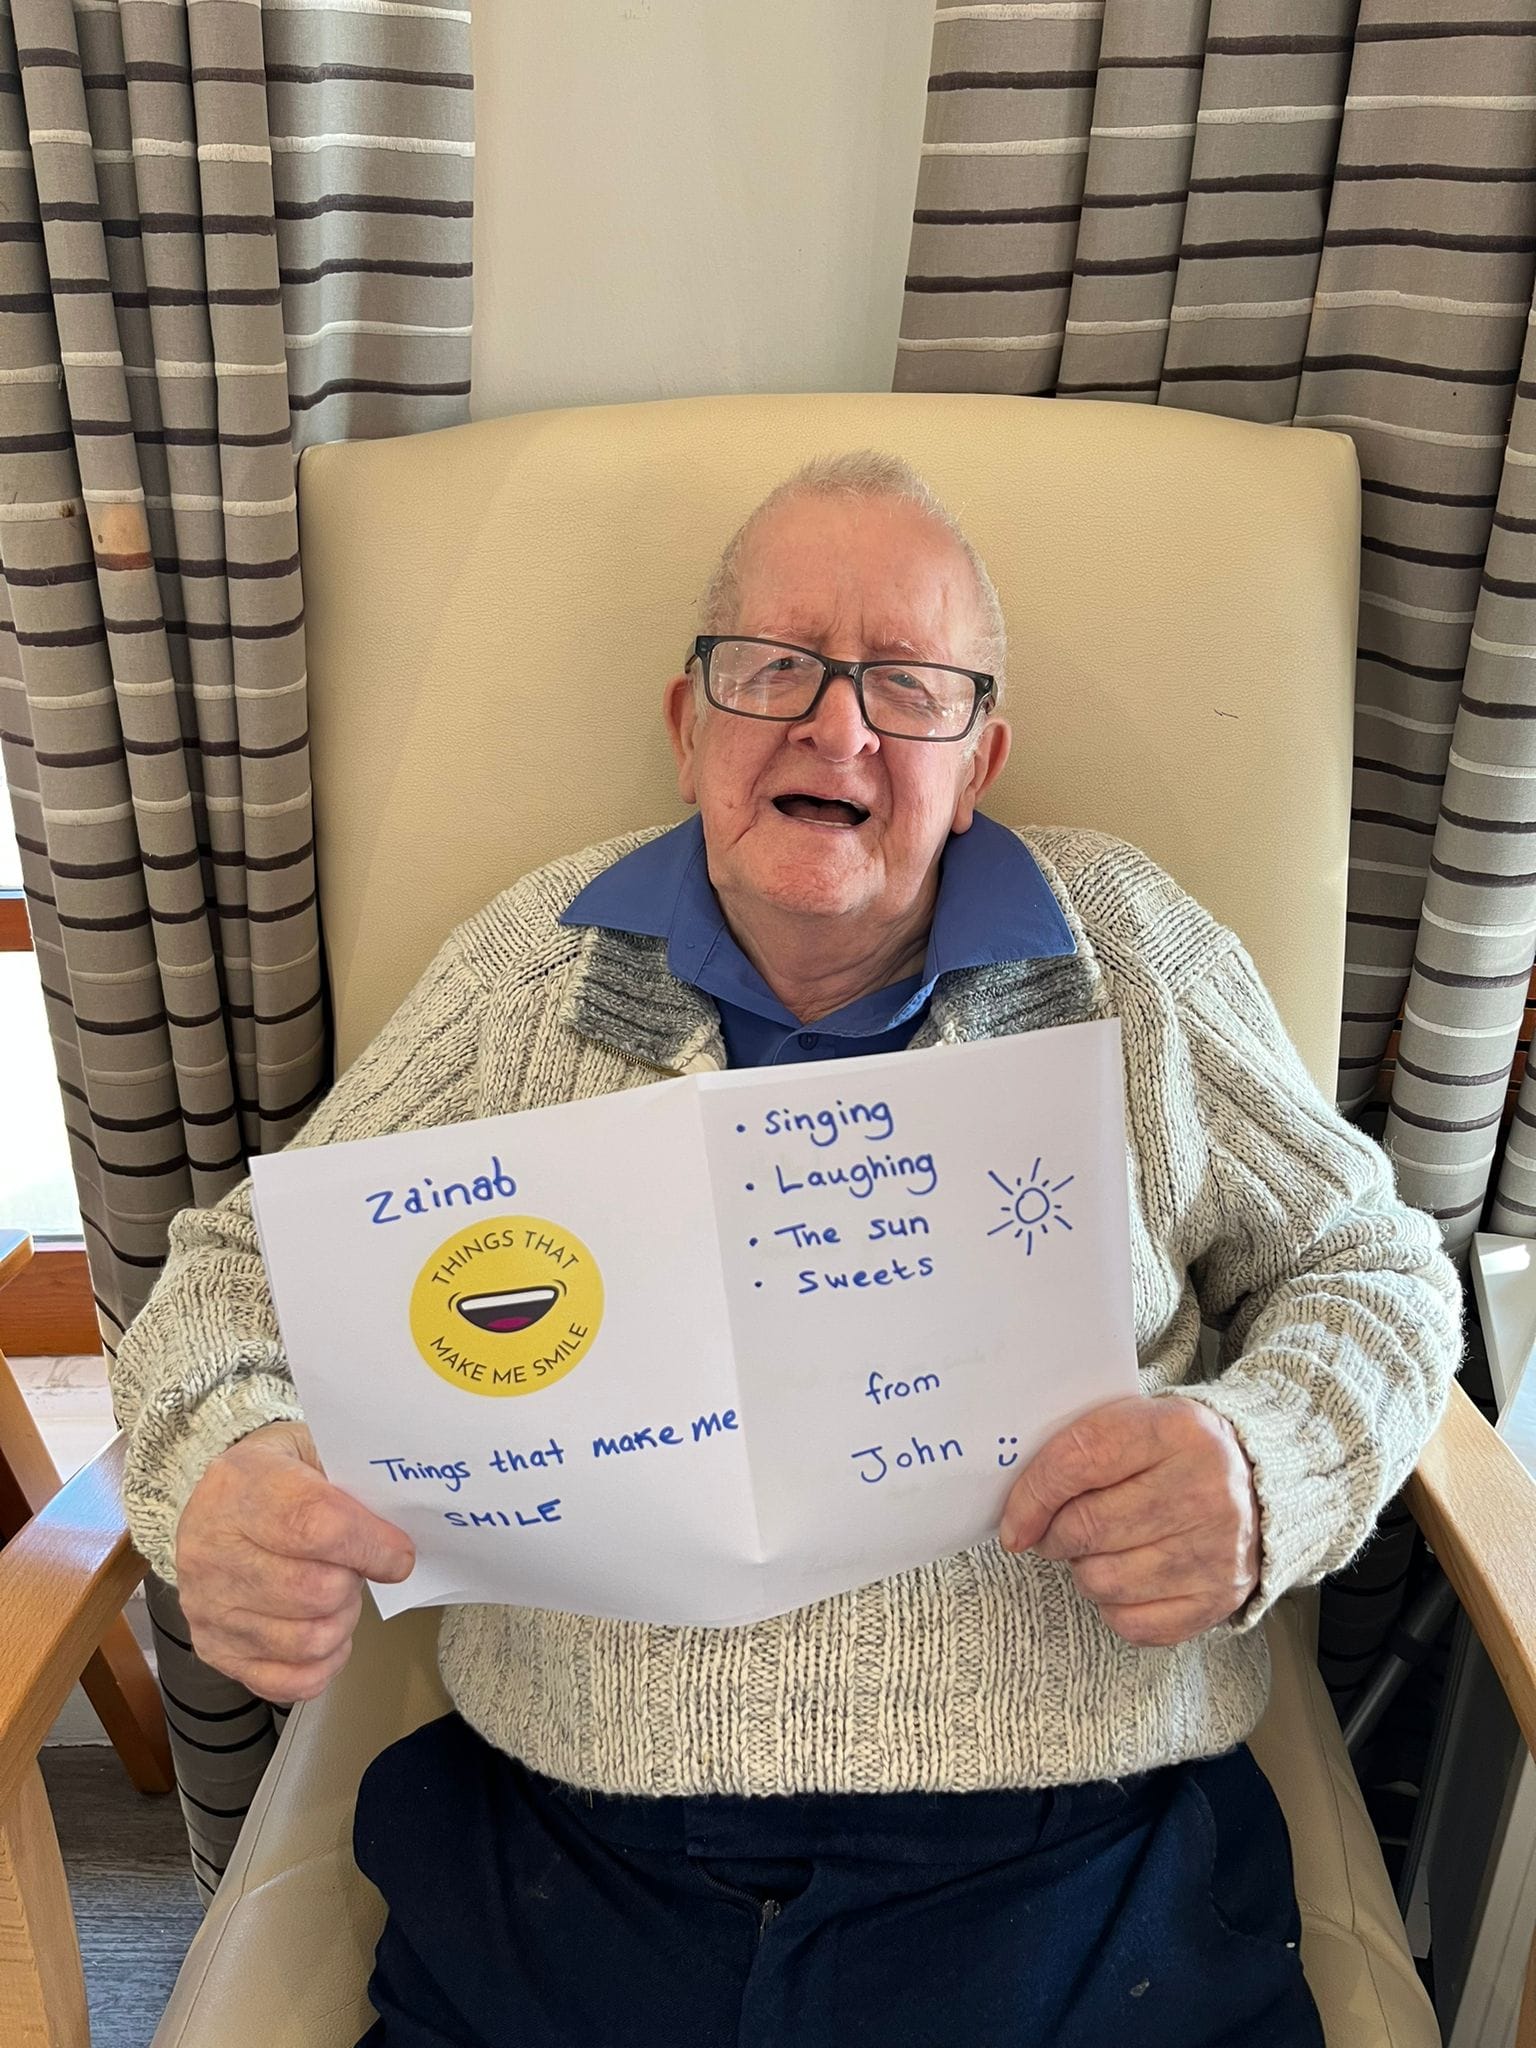 Zainab
THINGS THAT
MAKE ME SMILE
Things that make me
SMILE
• Singing
• Laughing
• The sun
• Sweets
from
John